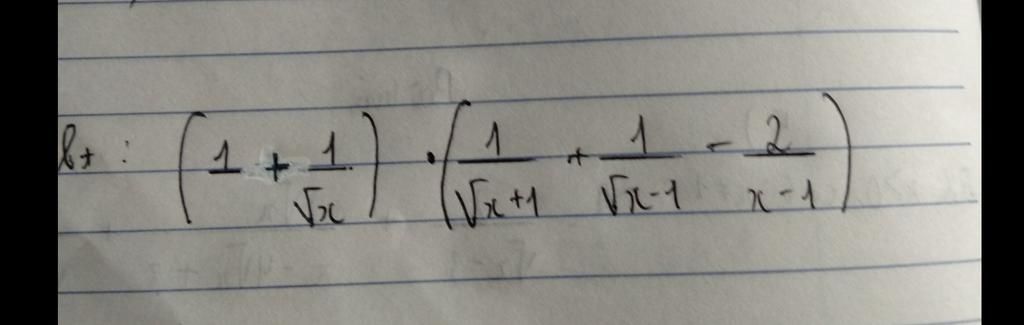 b, : (1 + 1/√x) · (1/(√x+1) + 1/(√x-1) - 2/(x-1))